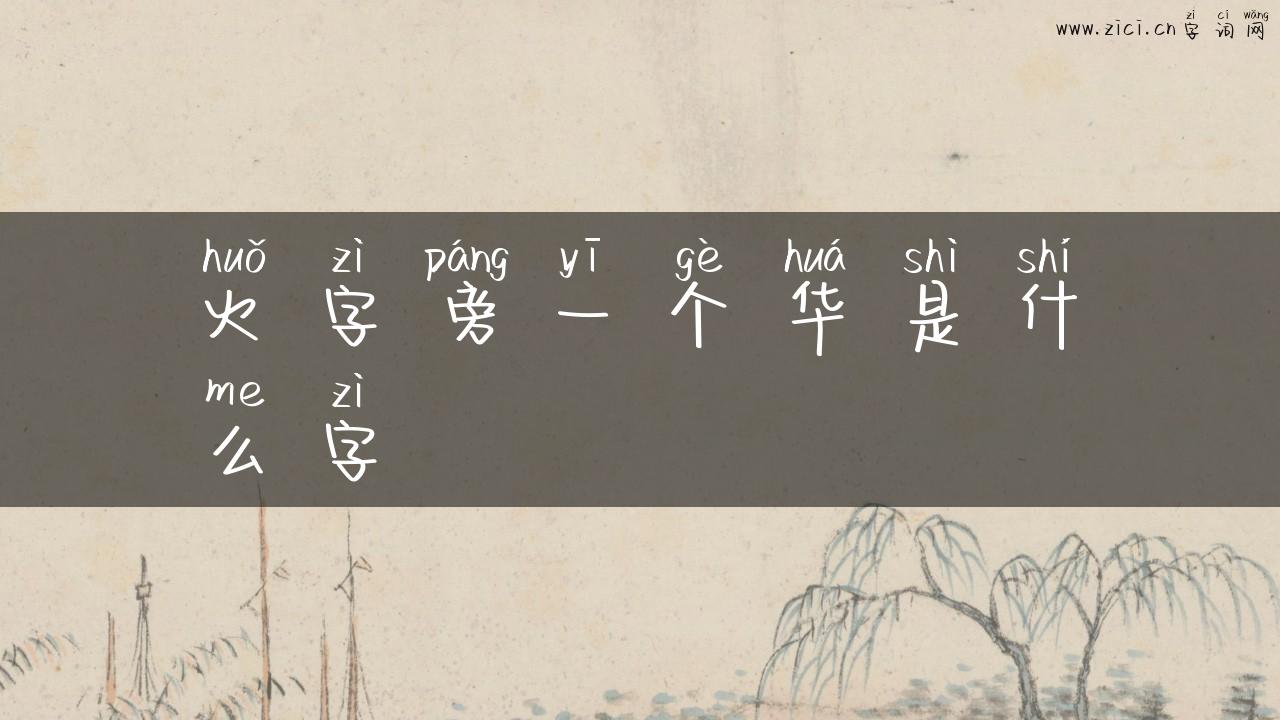 zì cí wǎng
www.zici.cn 字词网
huǒ zì páng yī gè huá shì shí
火字旁一个华是什
me zì
么字